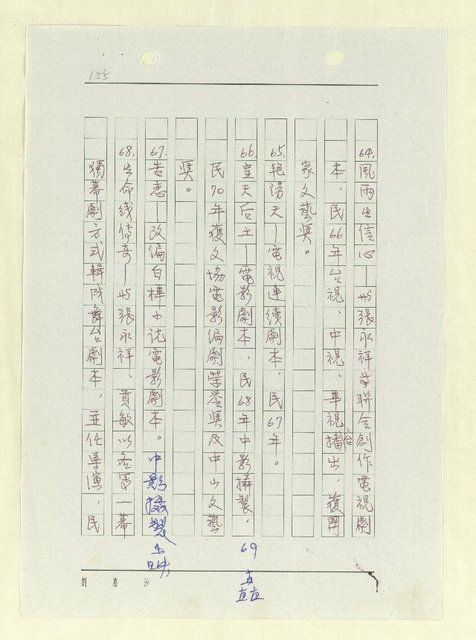 155
64.風雨生信心—與張永祥等聯合創作電視劇
本,民66年台視、中視、華視三台播出,獲國
家文藝獎。
65.艷陽天—電視連續劇本,民67年。
66.皇天后土—電影劇本,民68年中影攝製,
民70年獲文協電影編劇榮譽獎及中山文藝
獎。
67.苦戀—改編白樺小說電影劇本。中影攝製
69
68.生命線傳奇—與張永祥、貢敏以各寫一幕
獨幕劇方式輯成舞台劇本,並任導演,民